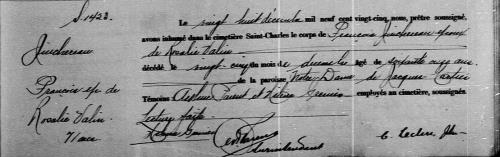 S. 1423
Juchereau
François ep. de
Rosalie Valin
71 ans
Le vingt huit décembre mil neuf cent vingt-cinq, nous, prêtre soussigné,
avons inhumé dans le cimetière Saint-Charles le corps de François Juchereau époux
de Rosalie Valin
décédé le vingt-cinq du mois de décembre âgé de soixante onze ans
de la paroisse Notre-Dame de Jacques-Cartier
Témoins Arthur Parent et employés au cimetière, soussignés
Lecture faite
Surintendent
C. Leclerc Ptr